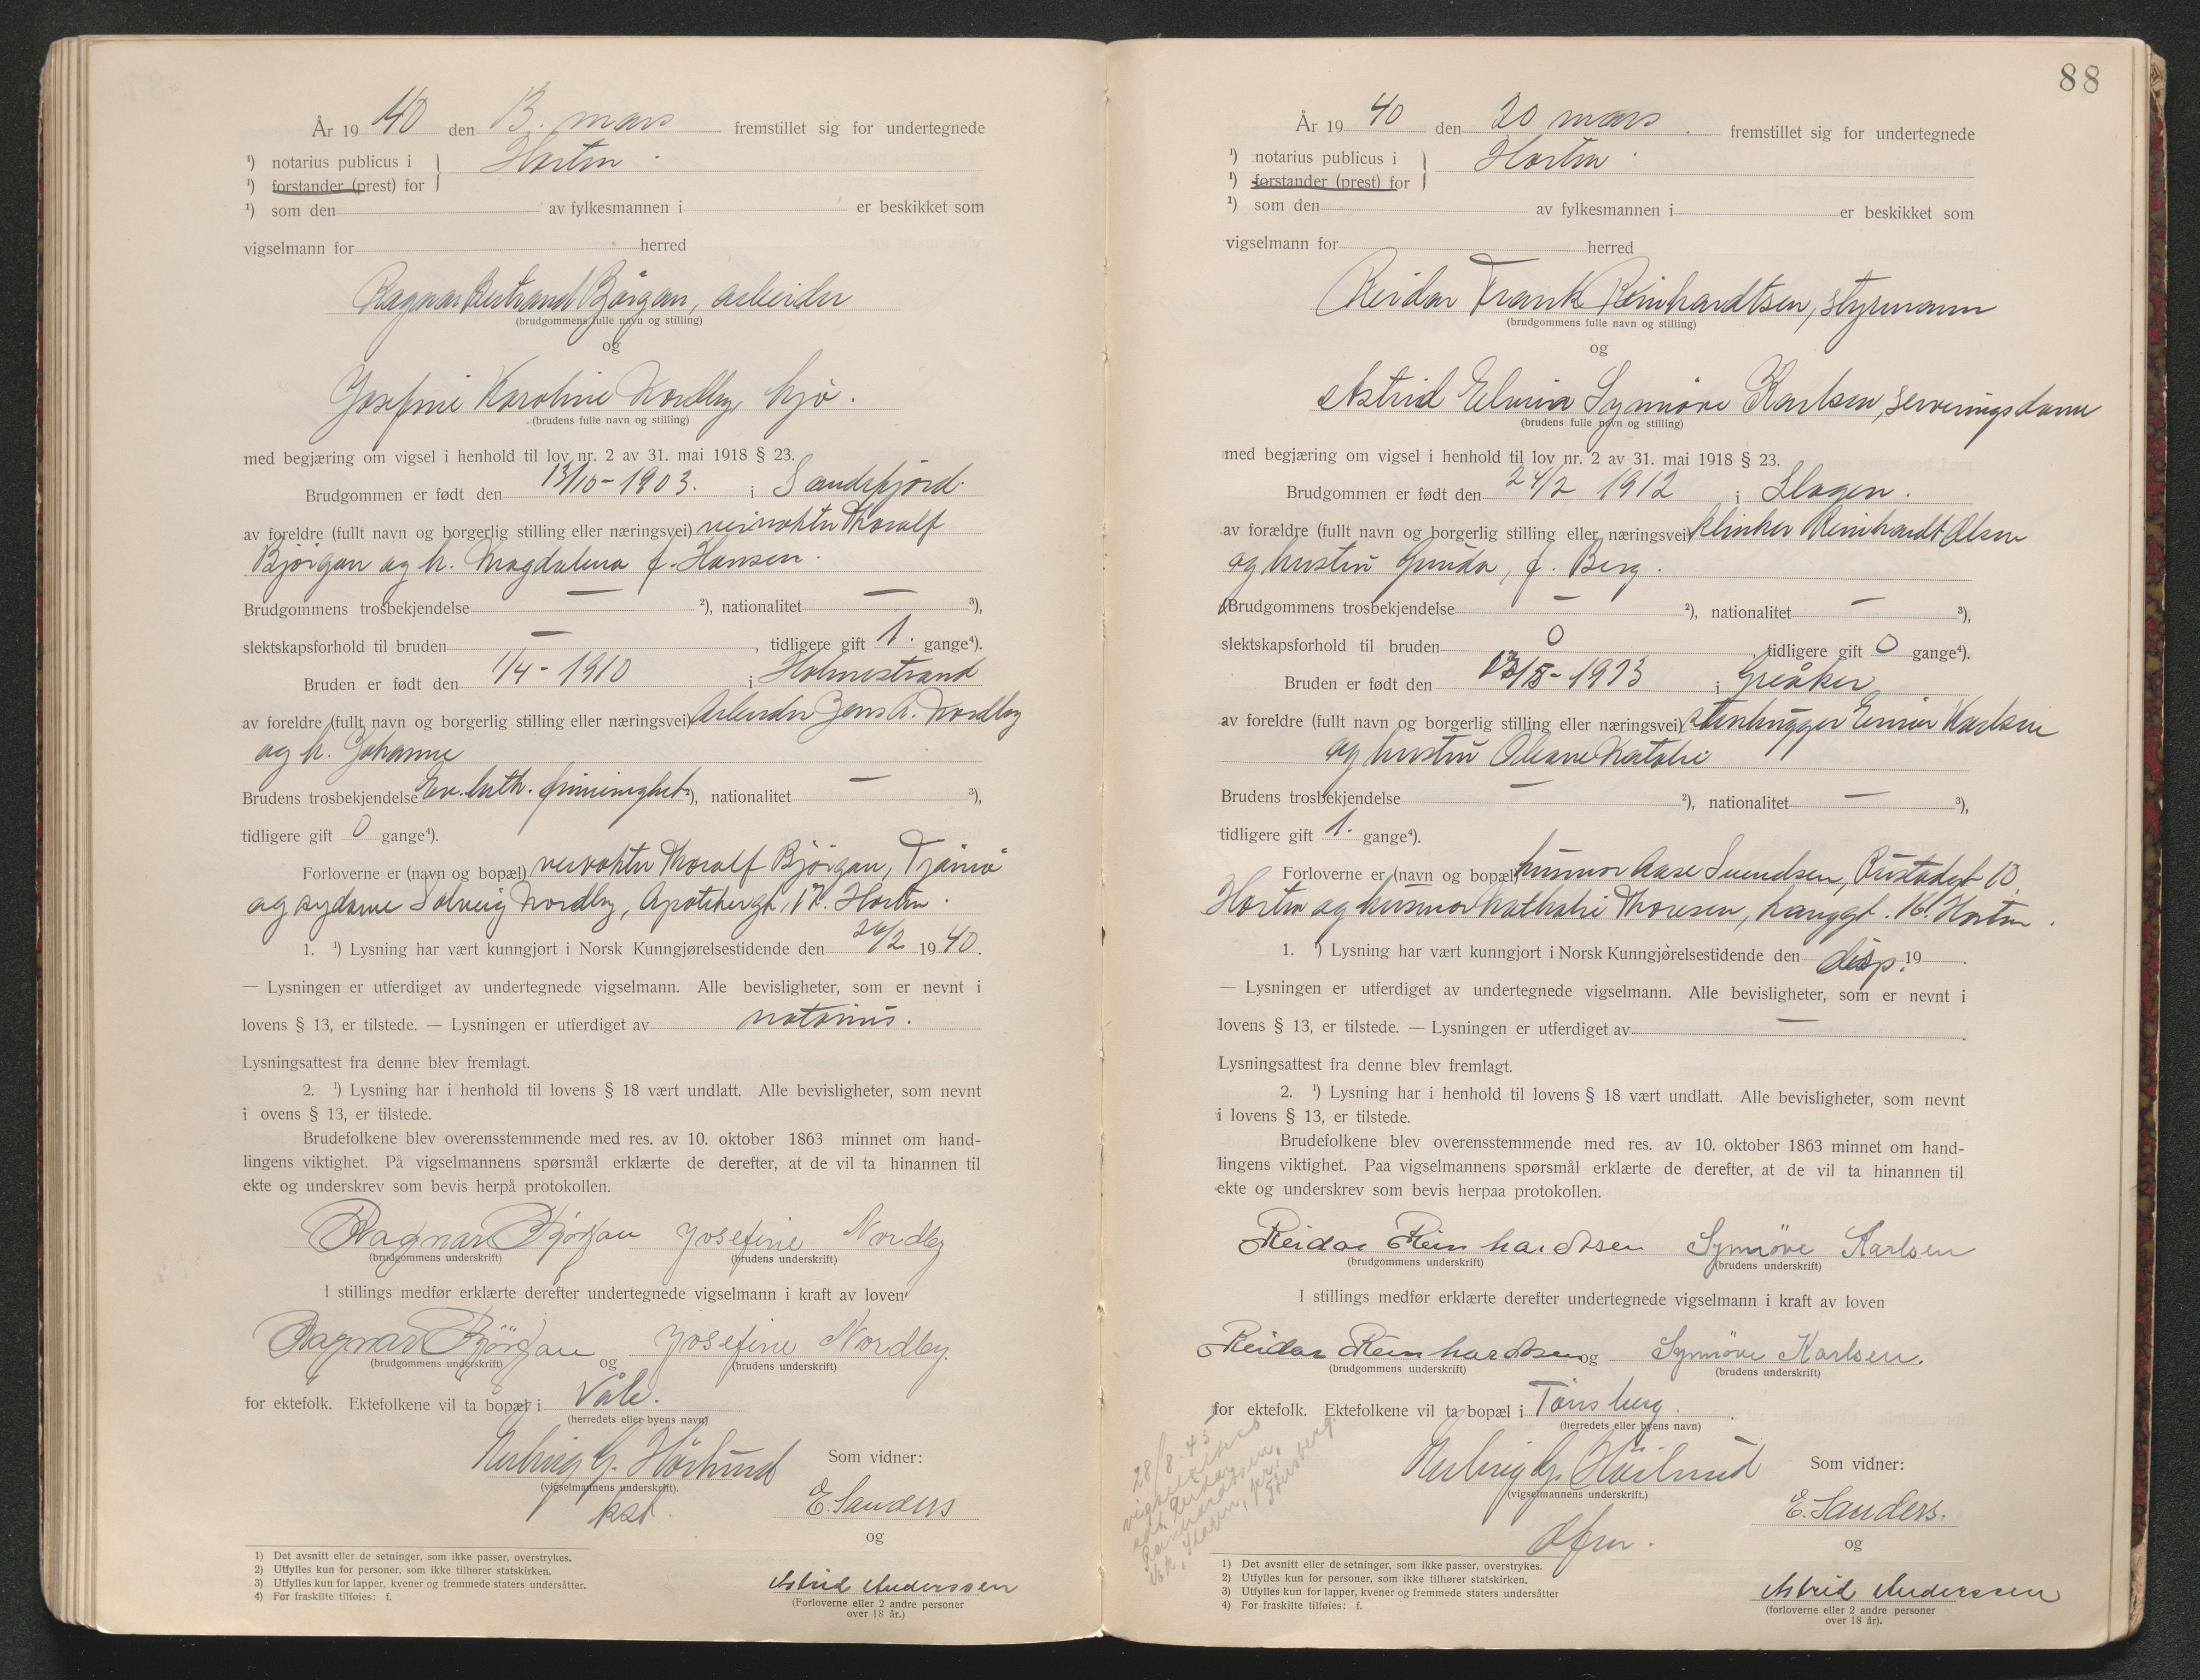 År 1940 den 13. mars fremstillet sig for undertegnede
¹) notarius publicus i Horten.
¹) forstander (prest) for
¹) som den av fylkesmannen i er beskikket som
vigselmann for herred
Ragnar Bertrand Bjørgan, arbeider
(brudgommens fulle navn og stilling)
og
Josefine Karoline Nordby, hjø.
(brudens fulle navn og stilling)
med begjæring om vigsel i henhold til lov nr. 2 av 31. mai 1918 § 23.
Brudgommen er født den 13/10-1903. i Sandefjord.
av foreldre (fullt navn og borgerlig stilling eller næringsvei) veivokter Thoralf
Bjørgan og h. Magdalena f. Hansen.
Brudgommens trosbekjendelse — ²), nationalitet — ³),
slektskapsforhold til bruden —, tidligere gift 1. gange⁴).
Bruden er født den 1/4-1910 i Holmestrand
av foreldre (fullt navn og borgerlig stilling eller næringsvei) Arbeider Jens A. Nordby
og h. Johanne
Brudens trosbekjendelse Ev. luth. frimenighet ²), nationalitet — ³),
tidligere gift 0 gange⁴).
Forloverne er (navn og bopæl) veivokter Thoralf Bjørgan, Tjømø
og sydame Solveig Nordby, Apotekergt. 17. Horten.
1. ¹) Lysning har vært kunngjort i Norsk Kunngjørelsestidende den 26/2 1940.
— Lysningen er utferdiget av undertegnede vigselmann. Alle bevisligheter, som er nevnt i
lovens § 13, er tilstede. — Lysningen er utferdiget av notarius.
Lysningsattest fra denne blev fremlagt.
2. ¹) Lysning har i henhold til lovens § 18 vært undlatt. Alle bevisligheter, som nevnt
i ovens § 13, er tilstede.
Brudefolkene blev overensstemmende med res. av 10. oktober 1863 minnet om hand-
lingens viktighet. På vigselmannens spørsmål erklærte de derefter, at de vil ta hinannen til
ekte og underskrev som bevis herpå protokollen.
Ragnar Bjørgan Josefine Nordby
(brudgommens underskrift) (brudens underskrift)
I stillings medfør erklærte derefter undertegnede vigselmann i kraft av loven
Ragnar Bjørgan og Josefine Nordby.
(brudgommens underskrift) (brudens underskrift)
for ektefolk. Ektefolkene vil ta bopæl i Våle.
(herredets eller byens navn)
Som vidner:
(vigselmannens underskrift).
kst.
E. Sanders
og
Astrid Anderssen
(Forloverne eller 2 andre personer
over 18 år.)
1) Det avsnitt eller de setninger, som ikke passer, overstrykes.
2) Utfylles kun for personer, som ikke tilhører statskirken.
3) Utfylles kun for lapper, kvener og fremmede staters undersåtter.
4) For fraskilte tilføies: f.
88
År 1940 den 20 mars. fremstillet sig for undertegnede
¹) notarius publicus i Horten.
¹) forstander (prest) for
¹) som den av fylkesmannen i er beskikket som
vigselmann for herred
Reidar Frank Reinhardtsen, styrmann
(brudgommens fulle navn og stilling)
og
Astrid Elvira Synnøve Karlsen, serveringsdame
(brudens fulle navn og stilling)
med begjæring om vigsel i henhold til lov nr. 2 av 31. mai 1918 § 23.
Brudgommen er født den 24/2 1912 i Slagen.
av forældre (fullt navn og borgerlig stilling eller næringsvei) klinker Reinhardt Olsen
og hustru Gunda, f. Berg.
Brudgommens trosbekjendelse — ²), nationalitet — ³),
slektskapsforhold til bruden 0, tidligere gift 0 gange⁴).
Bruden er født den 13/5-1913 i Greåker
av foreldre (fullt navn og borgerlig stilling eller næringsvei) stenhugger Einar Karlsen
og hustru Oleane Natalie
Brudens trosbekjendelse — ²), nationalitet — ³),
tidligere gift 1. gange⁴).
Forloverne er (navn og bopæl) husmor Aase Svendsen, Rustadgt 10.
Horten og husmor Nathalie Thoresen, Langgt. 16. Horten.
1. ¹) Lysning har vært kunngjort i Norsk Kunngjørelsestidende den disp. 19
— Lysningen er utferdiget av undertegnede vigselmann. Alle bevisligheter, som er nevnt i
lovens § 13, er tilstede. — Lysningen er utferdiget av —
Lysningsattest fra denne blev fremlagt.
2. ¹) Lysning har i henhold til lovens § 18 vært undlatt. Alle bevisligheter, som nevnt
i lovens § 13, er tilstede.
Brudefolkene blev overensstemmende med res. av 10. oktober 1863 minnet om hand-
lingens viktighet. Paa vigselmannens spørsmål erklærte de derefter, at de vil ta hinannen til
ekte og underskrev som bevis herpaa protokollen.
Reidar Reinhardtsen Synnøve Karlsen
(brudgommens underskrift) (brudens underskrift)
I stillings medfør erklærte derefter undertegnede vigselmann i kraft av loven
Reidar Reinhardtsen og Synnøve Karlsen.
(brudgommens underskrift) (brudens underskrift)
for ektefolk. Ektefolkene vil ta bopæl i Tønsberg.
(herredets eller byens navn)
Som vidner:
(vigselmannens underskrift.)
E. Sanders.
og
Astrid Anderssen
(forloverne eller 2 andre personer
over 18 år).
28/8.45
vigselattest
Reidar
Reinhardtsen,
Slagen, pr. Tønsberg.
1) Det avsnitt eller de setninger, som ikke passer, overstrykes.
2) Utfylles kun for personer, som ikke tilhører statskirken.
3) Utfylles kun for lapper, kvener og fremmede staters undersåtter
4) For fraskilte tilføies: f.